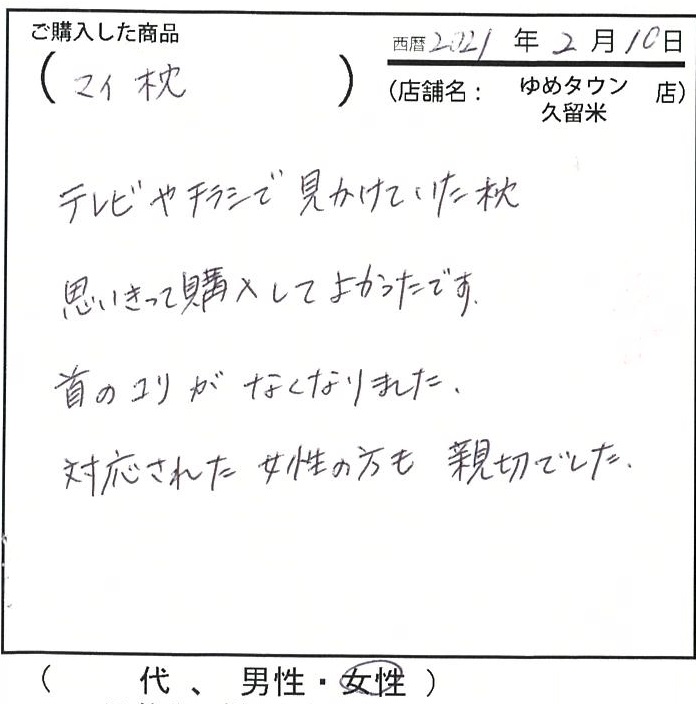 ご購入した商品
西暦2021年2月10日
(マイ枕)
(店舗名： ゆめタウン久留米 店)
テレビやチラシで見かけていた枕
思いきって購入してよかったです。
首のコリがなくなりました。
対応された女性の方も親切でした。
( 代、男性・女性)